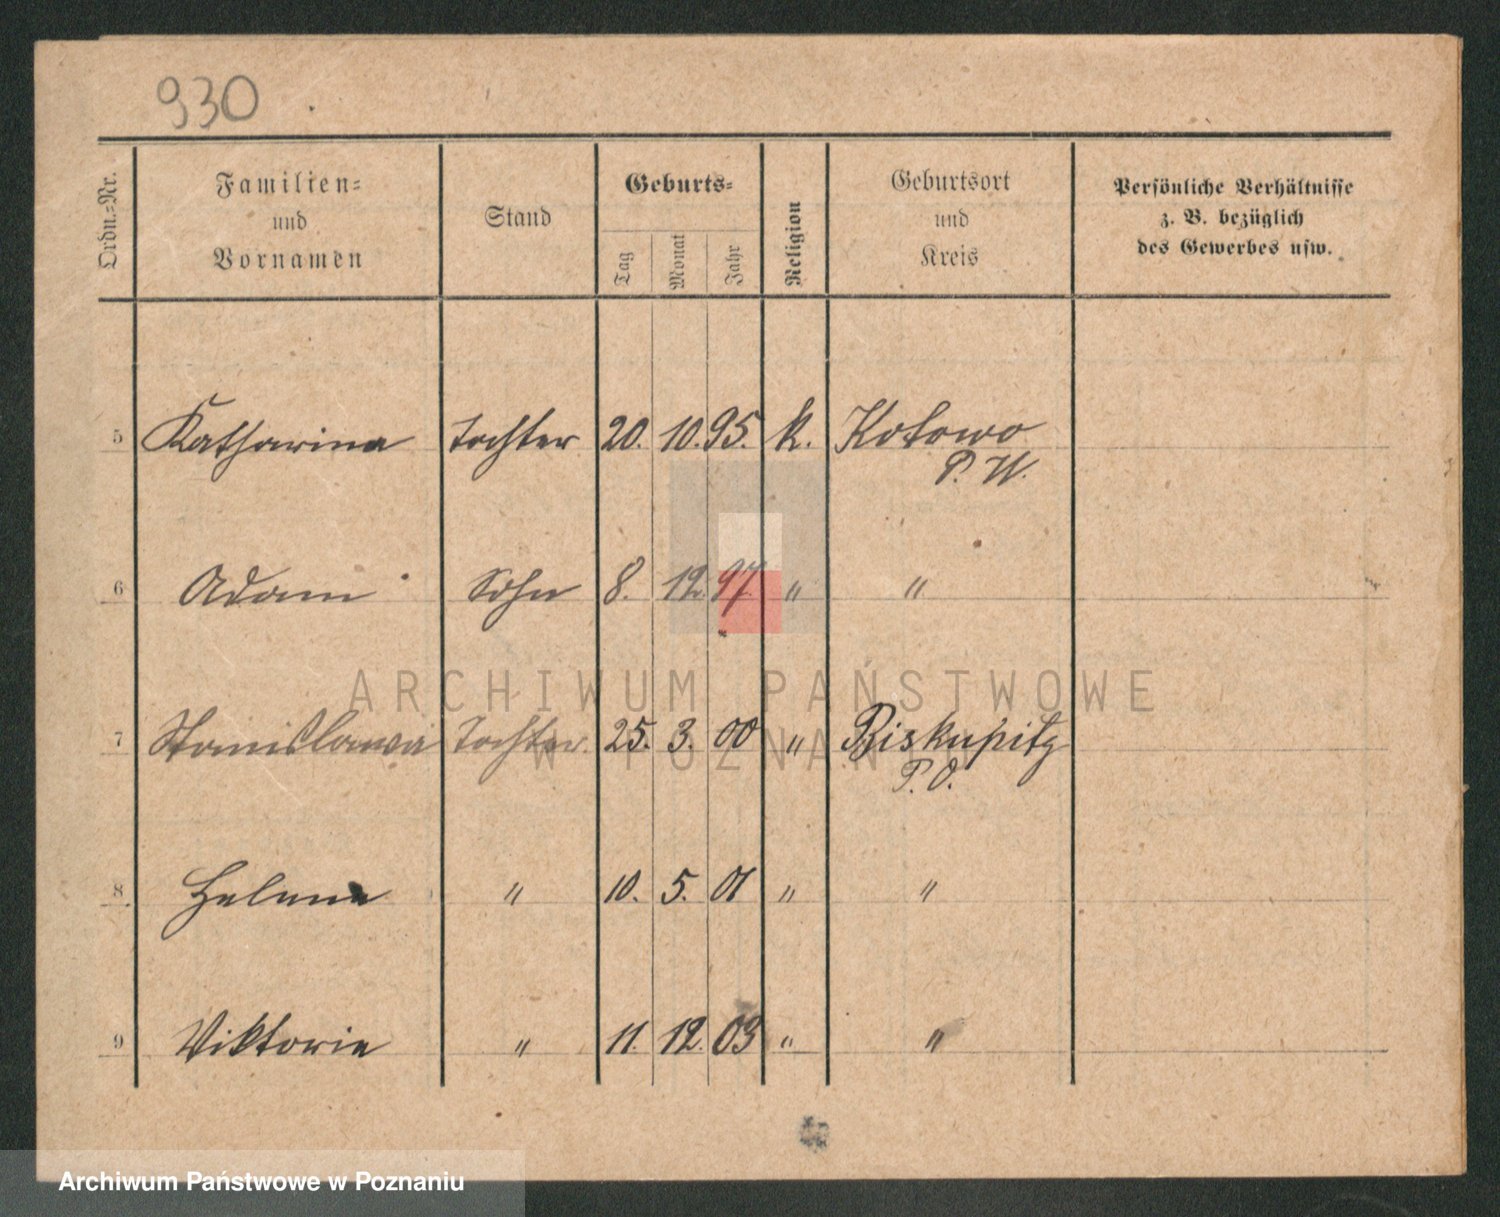 930
Ordn.-Nr.
Familien-
und
Vornamen
Stand
Geburts-
Tag
Monat
Jahr
Religion
Geburtsort
und
Kreis
Persönliche Verhältnisse
z. B. bezüglich
des Gewerbes usw.
5 Katharina Tochter 20. 10. 95. k. Kotowo
P. W.
6 Adam Sohn 8. 12. 97. " "
ARCHIWUM PAŃSTWOWE
7 Stanislawa Tochter 25. 3. 00 " Biskupitz
W POZNANIU
P. O.
8 Helena " 10. 5. 01 " "
9 Viktoria " 11. 12. 03 " "
Archiwum Państwowe w Poznaniu